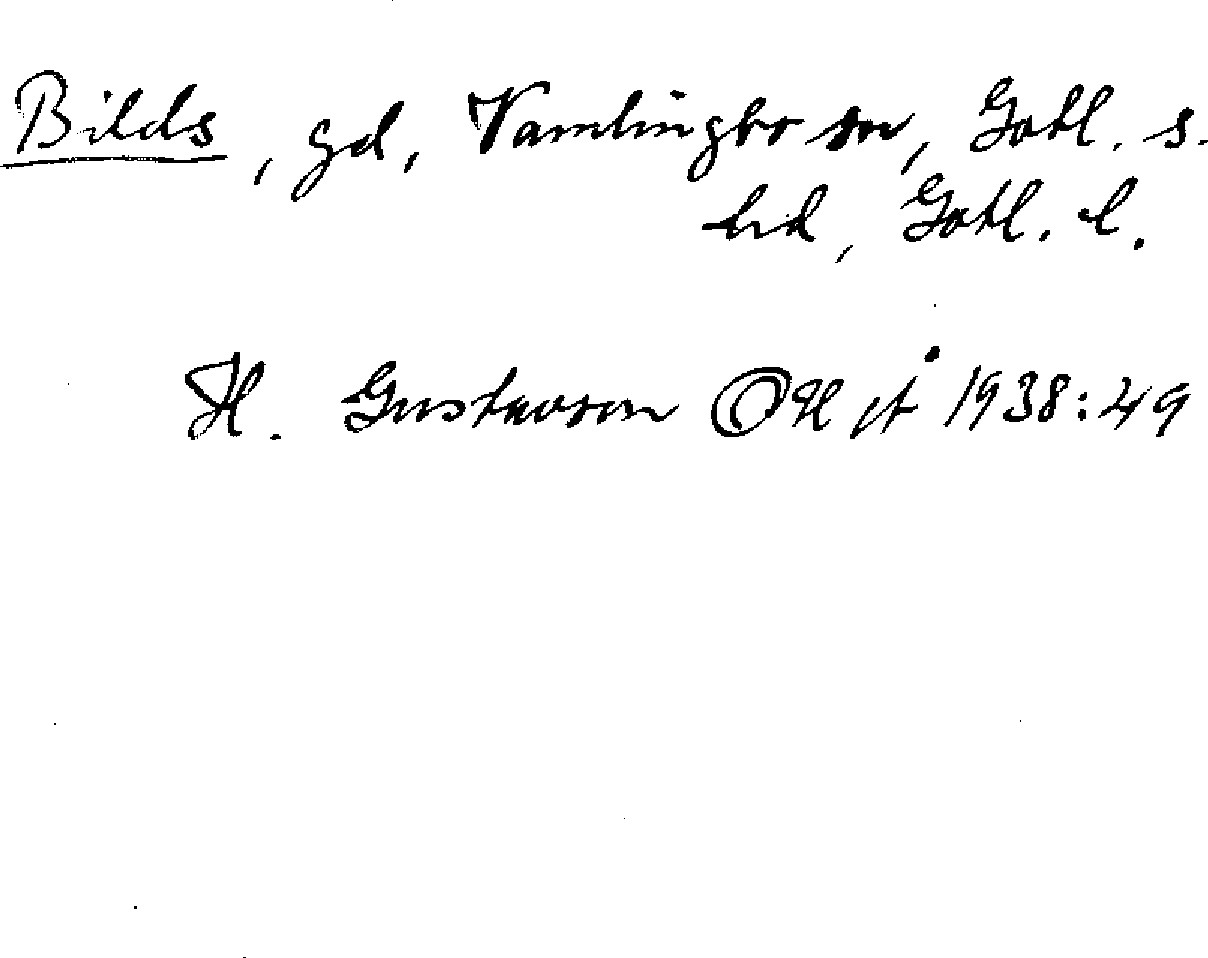 Bilds, gd, Vamlingbo sn, Gotl. s.
hd, Gotl. l.
H. Gustavson 1938:49